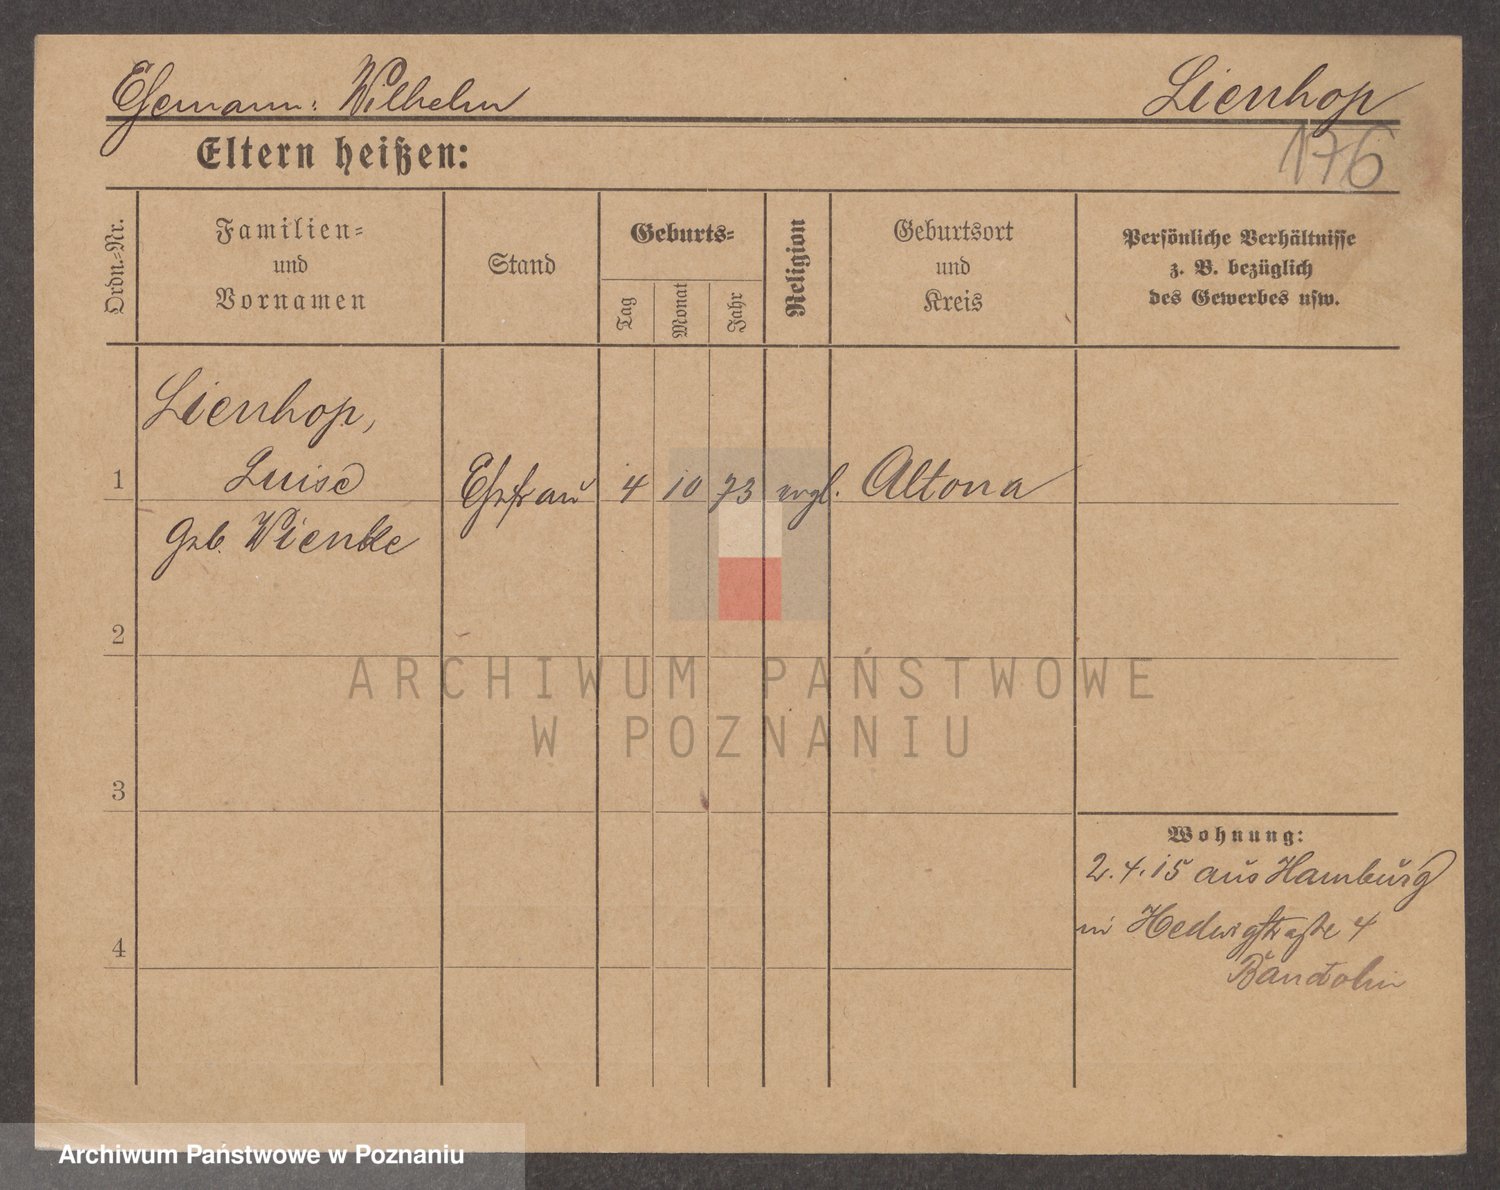 Ehemann: Wilhelm
Lienhop
Eltern heißen:
176
Ordn.-Nr.
Familien-
und
Vornamen
Stand
Geburts-
Tag
Monat
Jahr
Religion
Geburtsort
und
Kreis
Persönliche Verhältnisse
z. B. bezüglich
des Gewerbes usw.
Lienhop,
1 Luise Ehefrau 4 10 73 evgl. Altona
geb. Wienke
2
ARCHIWUM PAŃSTWOWE
W POZNANIU
3
Wohnung:
2.4.15 aus Hamburg
in Hedwigstraße 4
4
Archiwum Państwowe w Poznaniu